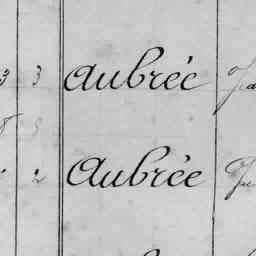 3 3 Aubrée
2 Aubrée